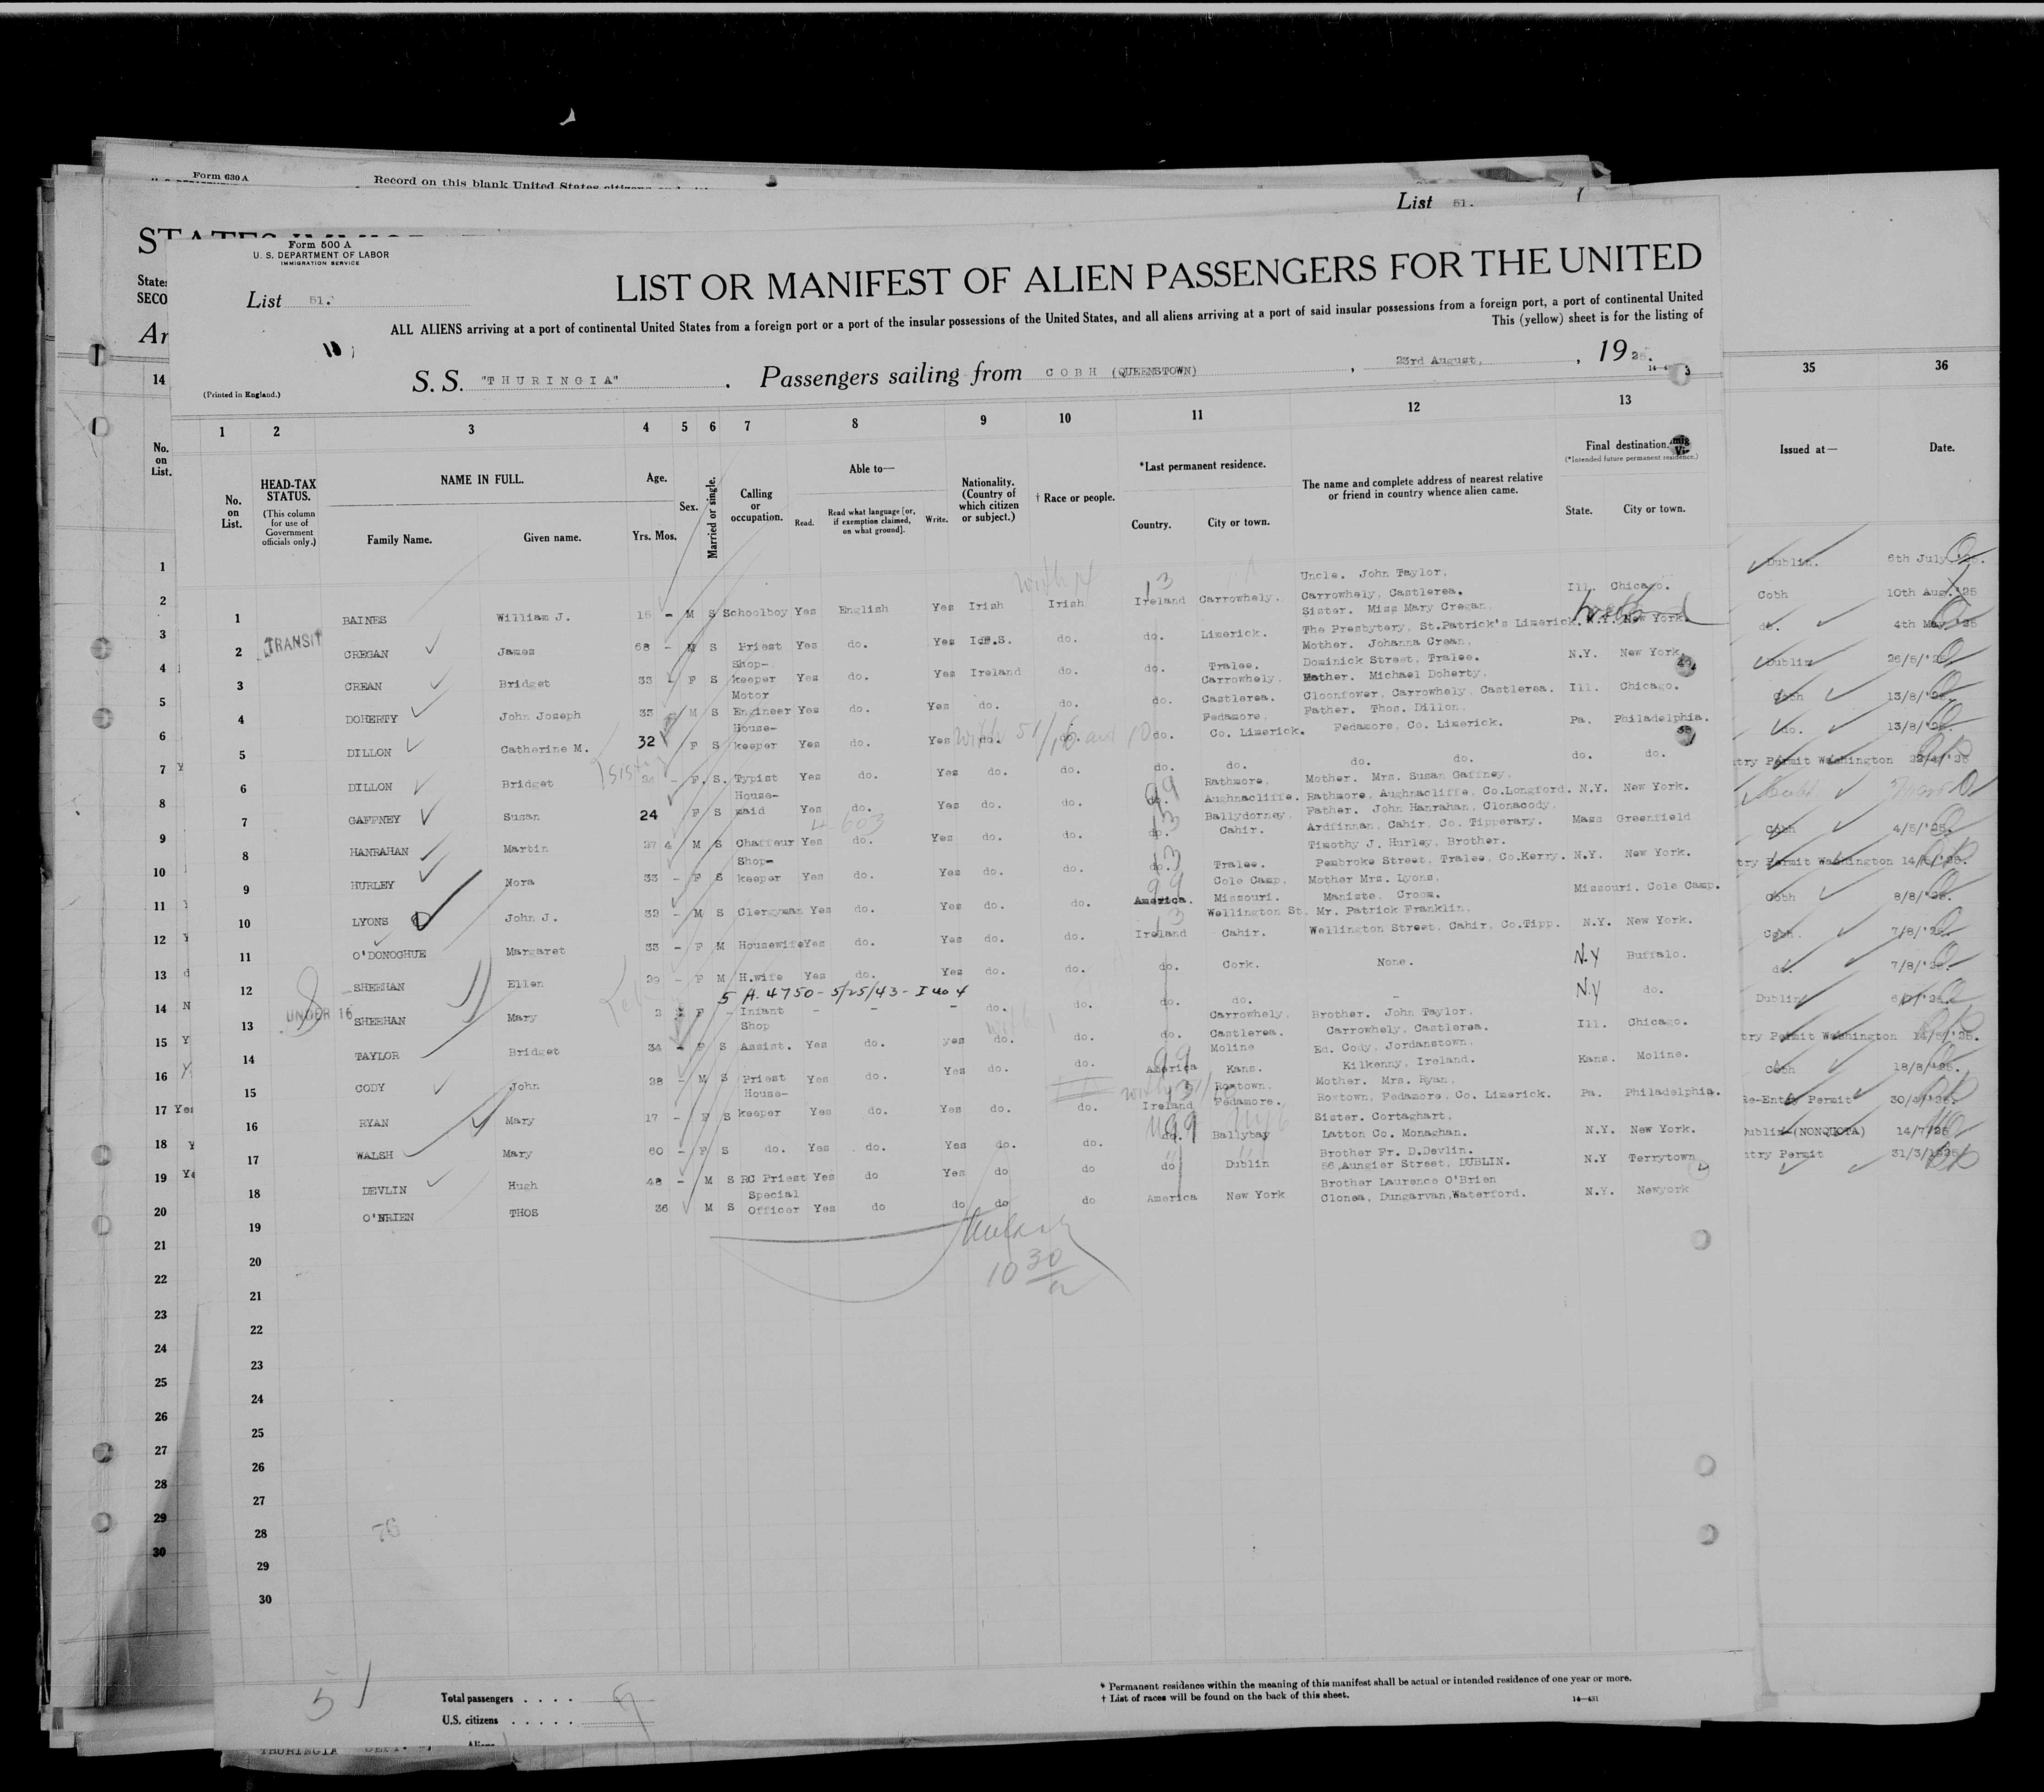 Form 630 A
Record on this blank United States citizens
List 51.
Form 500 A
U. S. DEPARTMENT OF LABOR
IMMIGRATION SERVICE
List 51.
LIST OR MANIFEST OF ALIEN PASSENGERS FOR THE UNITED
ALL ALIENS arriving at a port of continental United States from a foreign port or a port of the insular possessions of the United States, and all aliens arriving at a port of said insular possessions from a foreign port, a port of continental United
This (yellow) sheet is for the listing of
S. S. "THURINGIA" . Passengers sailing from COBH (QUEENSTOWN) , 23rd August, , 1925.
(Printed in England.)
1 2 3 4 5 6 7 8 9 10 11 12 13 35 36
No. on List. HEAD-TAX STATUS. (This column for use of Government officials only.) NAME IN FULL. Family Name. Given name. Age. Yrs. Mos. Sex. Married or single. Calling or occupation. Able to— Read. Read what language [or, if exemption claimed, on what ground]. Write. Nationality. (Country of which citizen or subject.) † Race or people. *Last permanent residence. Country. City or town. The name and complete address of nearest relative or friend in country whence alien came. Final destination. (*Intended future permanent residence.) State. City or town. Issued at— Date.
1 BAINES William J. 15 - M S Schoolboy Yes English Yes Irish Irish Ireland Carrowhely. Uncle. John Taylor, Carrowhely, Castlerea. Ill. Chicago.
2 TRANSIT CREGAN James 68 - M S Priest Yes do. Yes do. do. Limerick. Sister. Miss Mary Cregan, The Presbytery, St.Patrick's Limerick. N.Y. New York.
3 CREAN Bridget 33 - F S Shop-keeper Yes do. Yes Ireland do. do. Tralee. Mother. Johanna Crean, Dominick Street, Tralee. N.Y. New York.
4 DOHERTY John Joseph 33 M S Motor Engineer Yes do. Yes do. do. do. Carrowhely, Castlerea. Father. Michael Doherty, Cloonfower, Carrowhely, Castlerea. Ill. Chicago.
5 DILLON Catherine M. 32 F S House-keeper Yes do. Yes do. do. do. Fedamore, Co. Limerick. Father. Thos. Dillon, Fedamore, Co. Limerick. Pa. Philadelphia.
6 DILLON Bridget 24 - F. S. Typist Yes do. Yes do. do. do. do. do. do. do. do.
7 GAFFNEY Susan 24 F S House-maid Yes do. Yes do. do. do. Rathmore, Aughnacliffe. Mother. Mrs. Susan Gaffney, Rathmore, Aughnacliffe, Co.Longford. N.Y. New York.
8 HANRAHAN Martin 27 4 M S Chaffeur Yes do. Yes do. do. do. Ballydorney, Cahir. Father. John Hanrahan, Clonacody, Ardfinnan, Cahir, Co. Tipperary. Mass Greenfield
9 HURLEY Nora 33 - F S Shop-keeper Yes do. Yes do. do. do. Tralee. Timothy J. Hurley, Brother. Pembroke Street, Tralee, Co.Kerry. N.Y. New York.
10 LYONS John J. 32 - M S Clergyman Yes do. Yes do. do. America. Cole Camp, Missouri. Mother Mrs. Lyons, Maniste, Croom. Missouri. Cole Camp.
11 O'DONOGHUE Margaret 33 - F M Housewife Yes do. Yes do. do. Ireland Wellington St. Cahir. Mr. Patrick Franklin, Wellington Street, Cahir, Co.Tipp. N.Y. New York.
12 SHEEHAN Ellen 29 - F M H.wife Yes do. Yes do. do. do. Cork. None. N.Y Buffalo.
5 A. 4750 - 5/25/43 -
13 UNDER 16 SHEEHAN Mary 2 F - Infant - - - do. do. do. do. - N.Y do.
14 TAYLOR Bridget 34 - F S Shop Assist. Yes do. yes do. do. do. Carrowhely, Castlerea. Brother. John Taylor, Carrowhely, Castlerea. Ill. Chicago.
15 CODY John 28 - M S Priest Yes do. Yes do. do. America Moline Kans. Ed. Cody, Jordanstown, Kilkenny, Ireland. Kans. Moline.
16 RYAN Mary 17 - F S House-keeper Yes do. Yes do. do. Ireland Roxtown, Fedamore. Mother. Mrs. Ryan, Roxtown, Fedamore, Co. Limerick. Pa. Philadelphia.
17 WALSH Mary 60 - F S do. Yes do. Yes do. do. do. Ballybay Sister. Cortaghart, Latton Co. Monaghan. N.Y. New York.
18 DEVLIN Hugh 48 - M S RC Priest Yes do Yes do do do Dublin Brother Fr. D.Devlin. 56,Aungier Street, DUBLIN. N.Y Terrytown
19 O'BRIEN THOS 36 M S Special Officer Yes do do do do America New York Brother Laurence O'Brien Clonea, Dungarvan,Waterford. N.Y. Newyork
10 30
20
21
22
23
24
25
26
27
28
29
30
76
Dublin. 6th July '25.
Cobh 10th Aug. '25
do. 4th May '25
Dublin 26/5/'25
Cobh 13/8/'25.
do. 13/8/'25.
try Permit Washington 22/4/'25
Cobh 4/5/'25.
try Permit Washington 14/5/'25.
Cobh 8/8/'25.
Cobh. 7/8/'25.
do. 7/8/'25.
Dublin
try Permit Washington 14/5/'25.
Cobh 18/8/'25.
Re-Entry Permit 30/4/'25.
Dublin (NONQUOTA) 14/7/25
ntry Permit 31/3/1925
51
Total passengers . . . .
U.S. citizens . . . . .
Aliens
* Permanent residence within the meaning of this manifest shall be actual or intended residence of one year or more.
† List of races will be found on the back of this sheet.
14—431
THURINGIA SEPT.